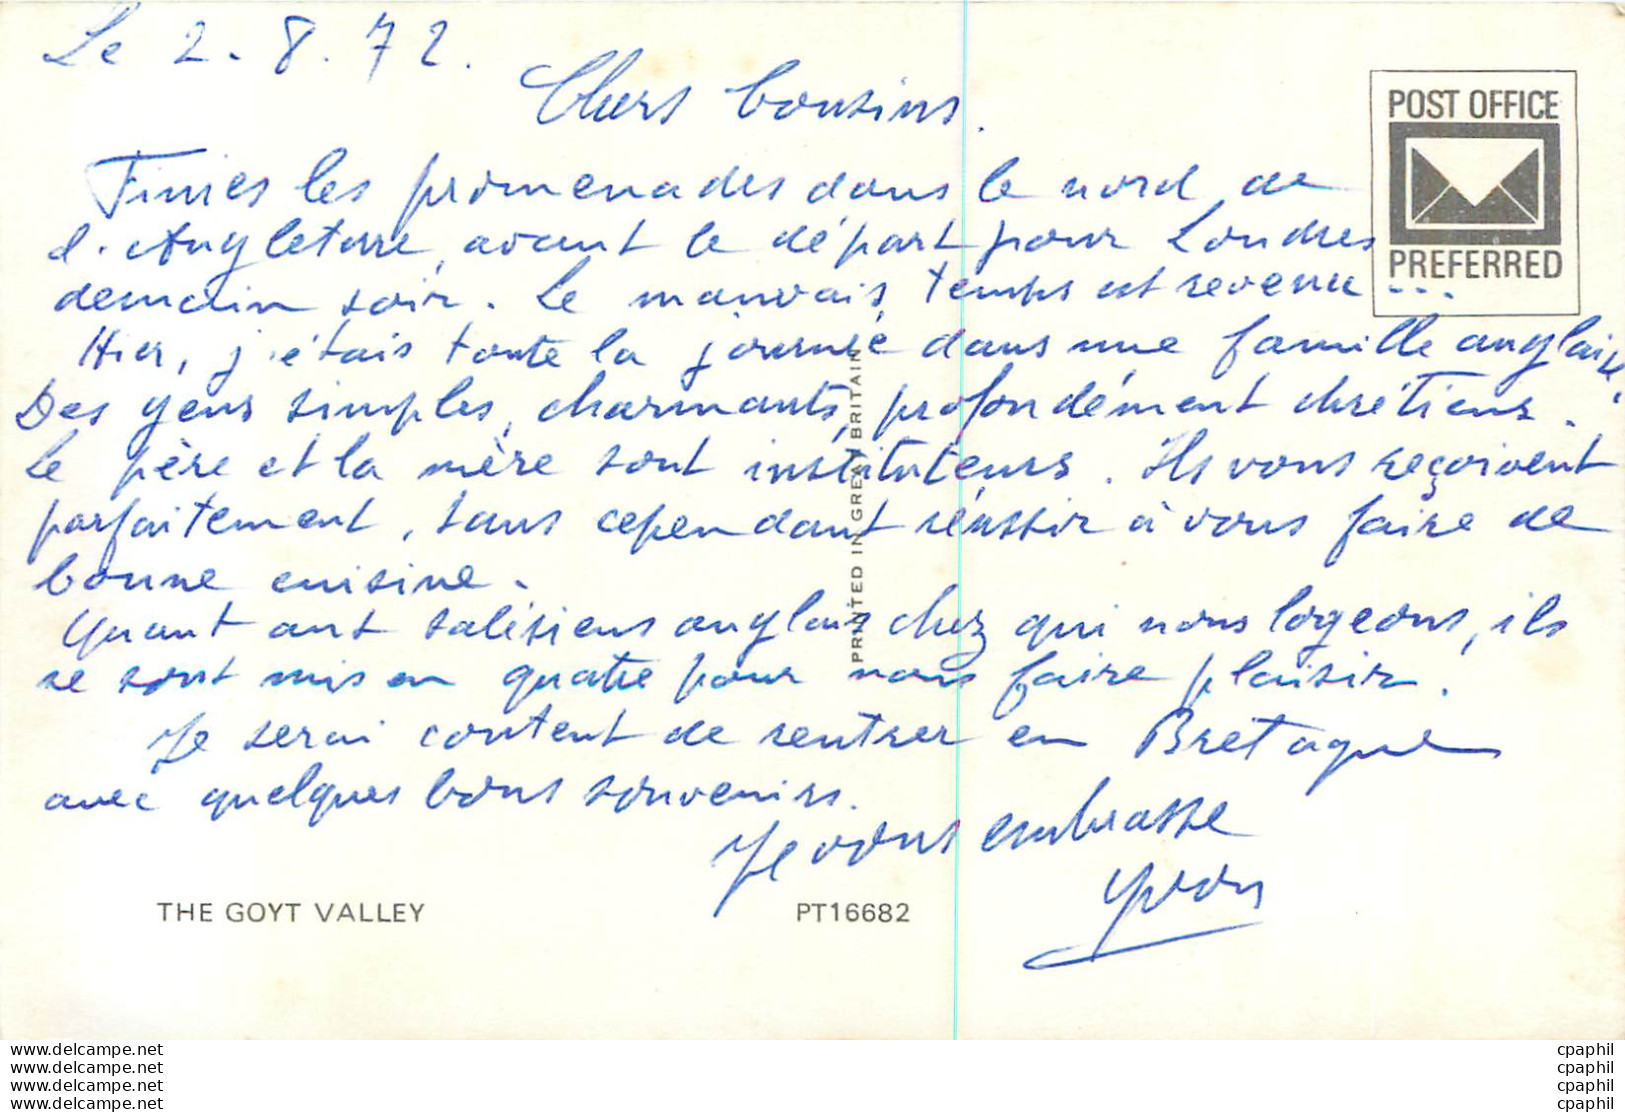 Le 2.8.72.
Chers Cousins.
POST OFFICE
PREFERRED
Finies les promenades dans le nord de
l'Angleterre, avant le départ pour Londres
demain soir. Le mauvais temps est revenu ...
Hier, j'étais toute la journée dans une famille anglaise.
Des gens simples, charmants, profondément chrétiens.
Le père et la mère sont instituteurs. Ils vous reçoivent
parfaitement, sans cependant réussir à vous faire de
bonne cuisine.
Quant aux salésiens anglais chez qui nous logeons, ils
se sont mis en quatre pour nous faire plaisir.
Je serai content de rentrer en Bretagne
avec quelques bons souvenirs.
Je vous embrasse
Yvon
PRINTED IN GREAT BRITAIN
THE GOYT VALLEY
PT16682
www.delcampe.net
www.delcampe.net
www.delcampe.net
www.delcampe.net
cpaphil
cpaphil
cpaphil
cpaphil